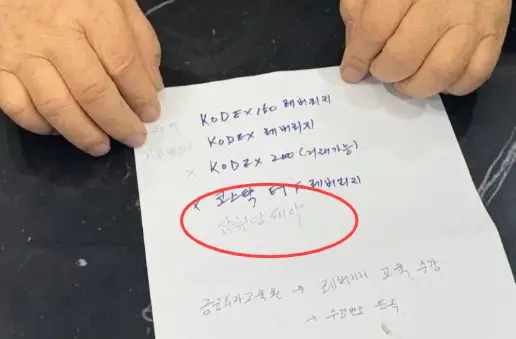 KODEX 150 레버리지
KODEX 레버리지
x KODEX 200 (거래가능)
x 코스닥 레버리지
삼천당제약
금융투자교육원 → 레버리지 교육 수강
→ 수강번호 등록